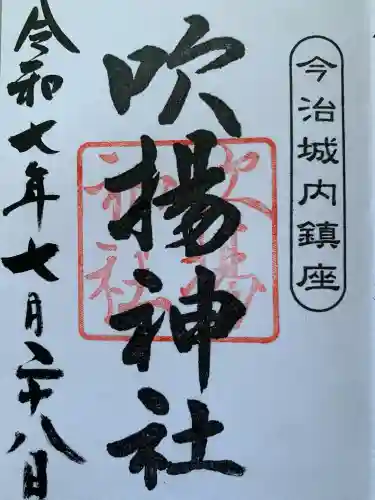 今治城内鎮座
吹揚神社
吹揚神社
令和七年七月二十八日